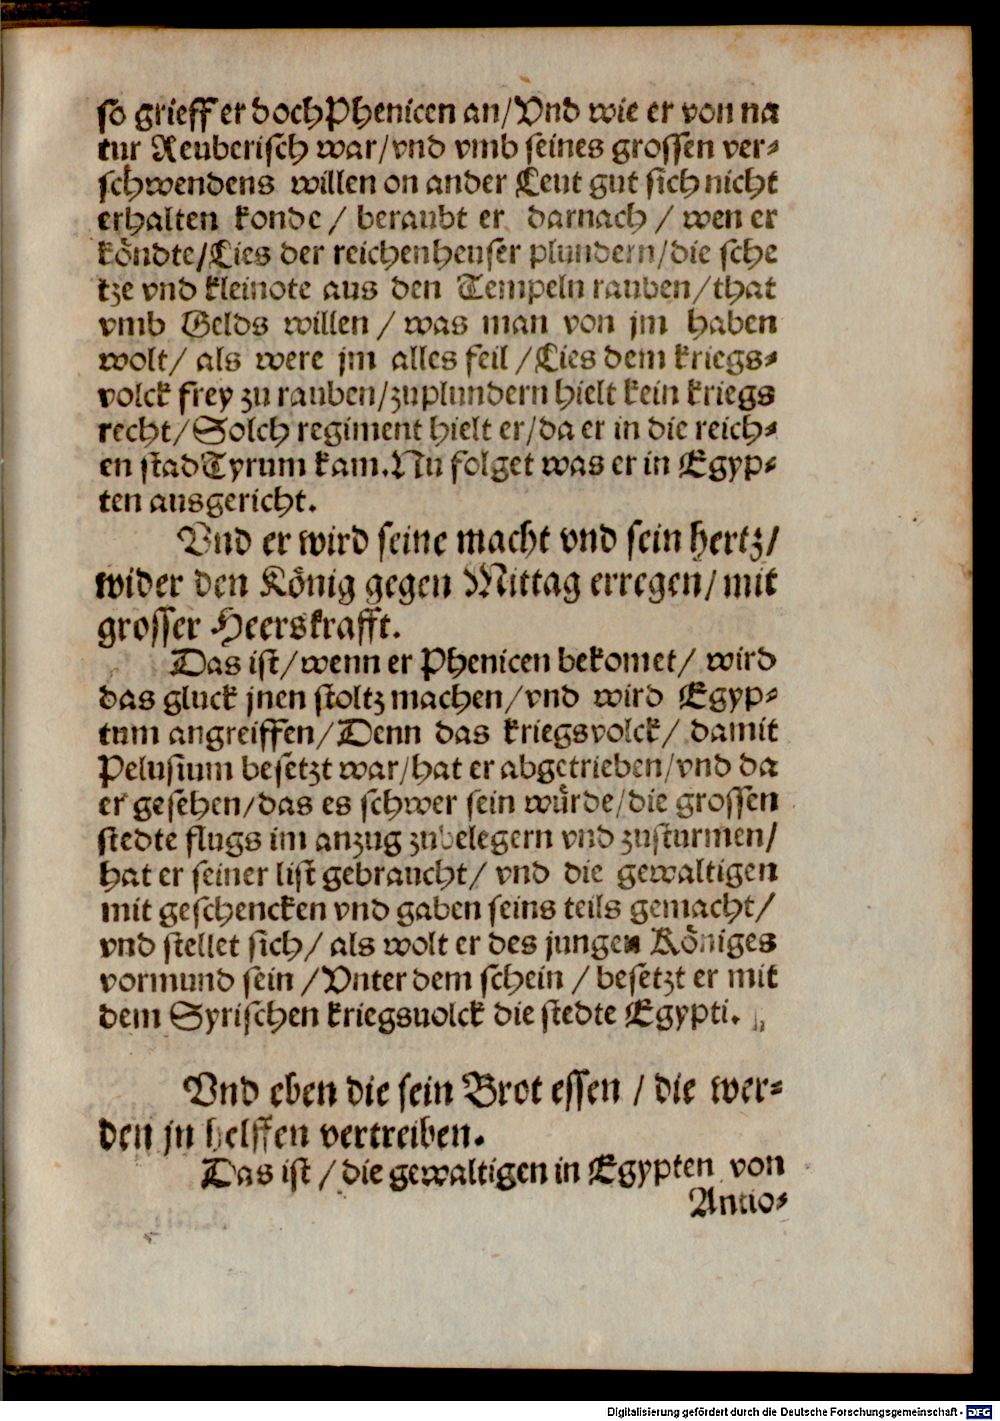 so grieff er doch Phenicen an/Vnd wie er von na
tur Reuberisch war/vnd vmb seines grossen ver⸗
schwendens willen on ander Leut gut sich nicht
erhalten konde/ beraubt er darnach/ wen er
köndte/Lies der reichen heuser plundern/die sche
tze vnd kleinote aus den Tempeln rauben/that
vmb Gelds willen/ was man von jm haben
wolt/ als were jm alles feil/Lies dem kriegs⸗
volck frey zu rauben/zuplundern hielt kein kriegs
recht/Solch regiment hielt er/da er in die reich⸗
en stad Tyrum kam.Nu folget was er in Egyp⸗
ten ausgericht.
Vnd er wird seine macht vnd sein hertz/
wider den König gegen Mittag erregen/mit
grosser Heerskrafft.
Das ist/wenn er Phenicen bekomet/ wird
das gluck jnen stoltz machen/vnd wird Egyp⸗
tum angreiffen/Denn das kriegsvolck/ damit
Pelusium besetzt war/hat er abgetrieben/vnd da
er gesehen/das es schwer sein würde/die grossen
stedte flugs im anzug zubelegern vnd zusturmen/
hat er seiner list gebraucht/ vnd die gewaltigen
mit geschencken vnd gaben seins teils gemacht/
vnd stellet sich/ als wolt er des jungen Königes
vormund sein/Vnter dem schein/ besetzt er mit
dem Syrischen kriegsuolck die stedte Egypti.
Vnd eben die sein Brot essen/ die wer⸗
den jn helffen vertreiben.
Das ist/die gewaltigen in Egypten von
Antio⸗
Digitalisierung gefördert durch die Deutsche Forschungsgemeinschaft - DFG